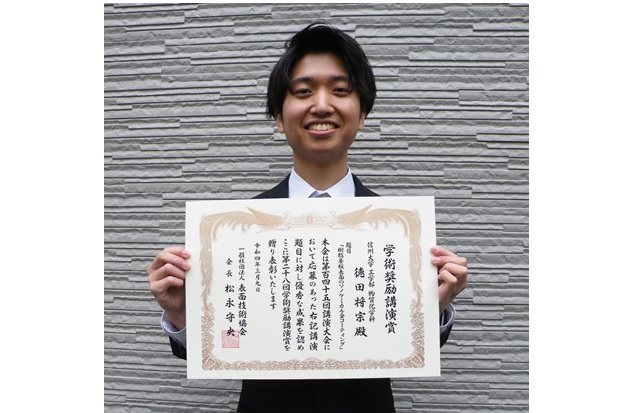 学術奨励講演賞
信州大学 工学部 物質化学科
徳田将宗殿
題目
「樹脂基板表面のソノケミカル金コーティング」
本会は第百四十五回講演大会に
おいて応募のあった右記講演
題目に対し優秀な成果を認め
ここに第二十八回学術奨励講演賞を
贈り表彰いたします
令和四年三月九日
一般社団法人 表面技術協会
会長 松永守央